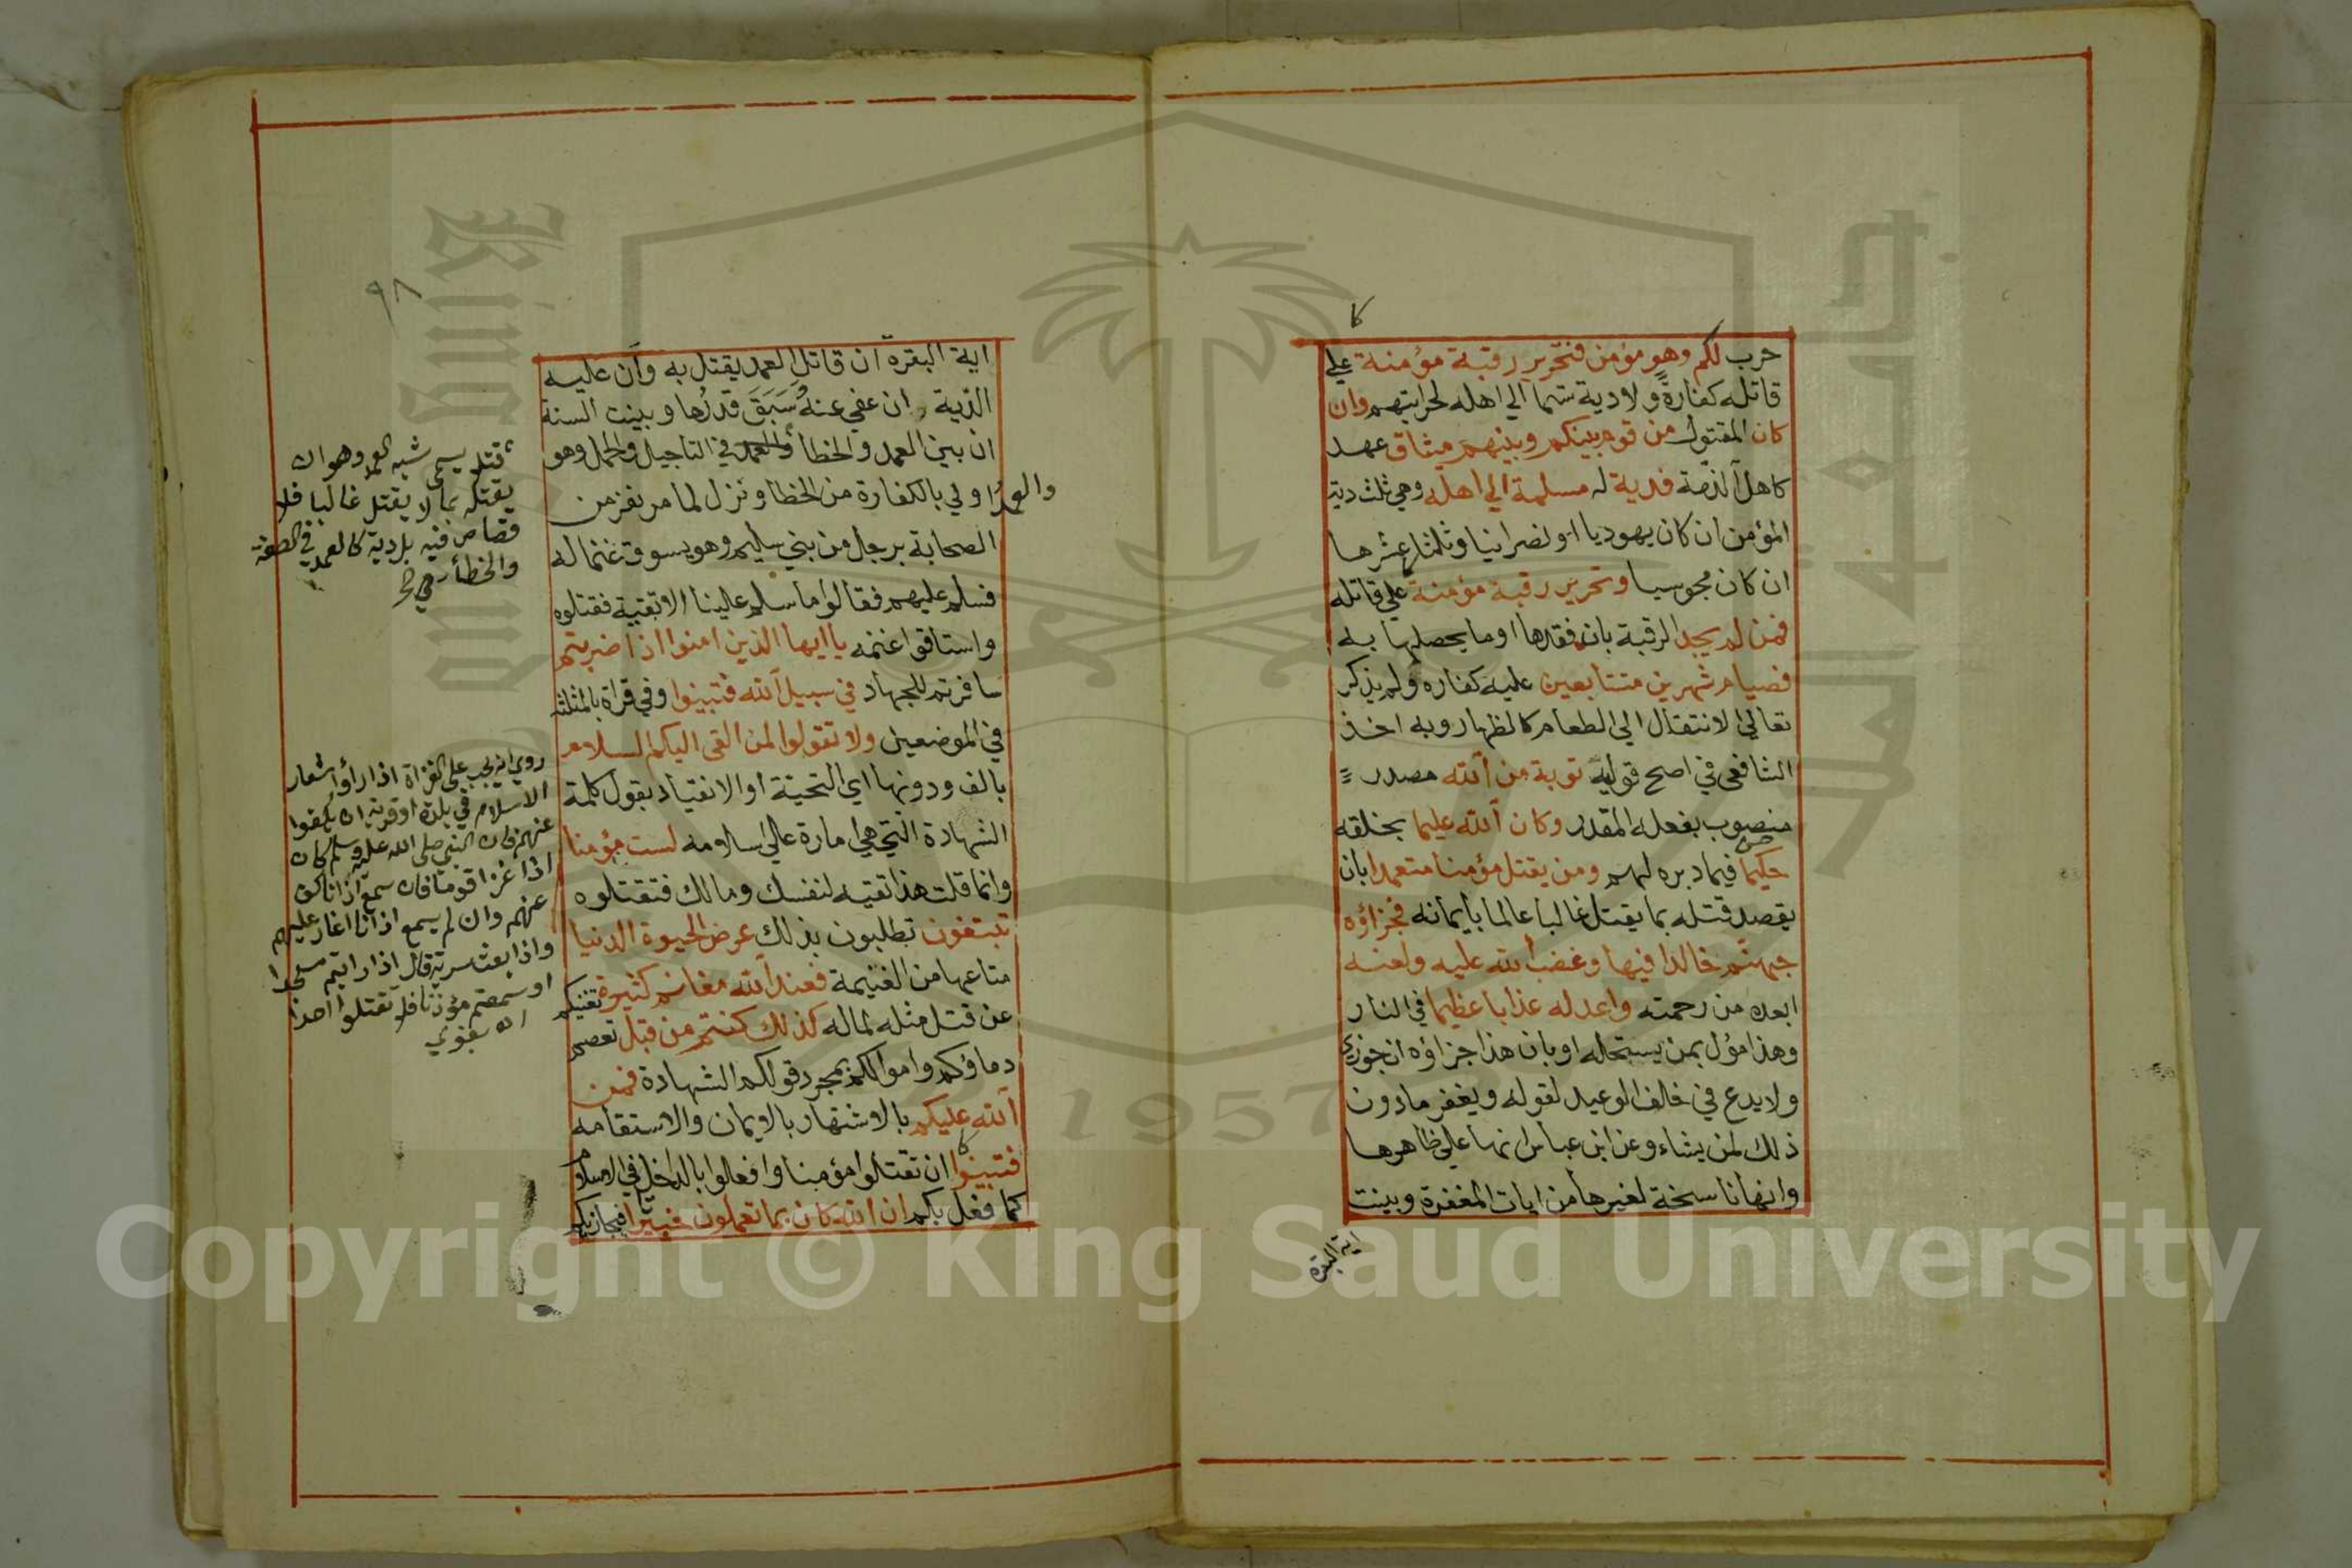 حرب لكم وهو مؤمن فتحرير رقبة مؤمنة علي
قاتله كفارة ولا دية تسلم الي اهله لحرابتهم وان
كان المقتول من قوم بينكم وبينهم ميثاق عهد
كاهل الذمة فدية له مسلمة الي اهله وهي ثلث دية
المؤمن ان كان يهوديا او نصرانيا وثلثا عشرها
ان كان مجوسيا وتحرير رقبة مؤمنة علي قاتله
فمن لم يجد الرقبة بان فقدها او ما يحصلها به
فصيام شهرين متتابعين عليه كفارة ولم يذكر
تعالي الانتقال الي الطعام كالظهار وبه اخذ
الشافعي في اصح قوليه توبة من الله مصدر
منصوب بفعله المقدر وكان الله عليما بخلقه
حكيما فيما دبره لهم ومن يقتل مؤمنا متعمدا بان
يقصد قتله بما يقتل غالبا عالما بأيمانه فجزاؤه
جهنم خالدا فيها وغضب الله عليه ولعنه
ابعده من رحمته واعد له عذابا عظيما في النار
وهذا مؤل بمن يستحله او بان هذا جزاؤه ان جوزي
ولا يدع في خالف الوعيد لقوله ويغفر ما دون
ذلك لمن يشاء وعن ابن عباس انها علي ظاهرها
وانها ناسخة لغيرها من ايات المغفرة وبينت
اية البقرة
٩٨
اية البقرة ان قاتل العمد يقتل به وان عليه
الدية ان عفي عنه وسبق قدرها وبينت السنة
ان بين العمد والخطأ والعمد في التاجيل والحمل وهو
والعمد اولي بالكفارة من الخطا ونزل لما مر نفر من
الصحابة برجل من بني سليم وهو يسوق غنما له
فسلم عليهم فقالوا ما سلم علينا الا تقية فقتلوه
واستاقوا غنمه يا ايها الذين امنوا اذا ضربتم
سافرتم للجهاد في سبيل الله فتبينوا وفي قراة بالمثلثة
في الموضعين ولا تقولوا لمن القي اليكم السلام
بالف ودونها اي التحية او الانقياد بقول كلمة
الشهادة التي هي امارة علي اسلامه لست مؤمنا
وانما قلت هذا تقيه لنفسك ومالك فتقتلوه
تبتغون تطلبون بذلك عرض الحيوة الدنيا
متاعها من الغنيمة فعند الله مغانم كثيرة تغنيكم
عن قتل مثله لماله كذلك كنتم من قبل تعصم
دماؤكم واموالكم بمجرد قولكم الشهادة فمن
الله عليكم بالاشتهار بالايمان والاستقامه
فتبينوا ان تقتلوا مؤمنا وافعلوا بالداخل في الاسلام
كما فعل بكم ان الله كان بما تعملون خبيرا فيجازيكم
قتلا يسمي شبه العمد وهو ان
يقتله بما لا يقتل غالبا فلا
قصاص فيه بل دية كالعمد في الصفة
والخطأ
روي انه يجب علي الغزاة اذا رأوا شعار
الاسلام في بلدة او قرية ان يكفوا
عنهم فان النبي صلي الله عليه وسلم كان
اذا غزا قوما فان سمع اذانا كف
عنهم وان لم يسمع اذانا اغار عليهم
واذا بعث سرية قال اذا رايتم مسجدا
او سمعتم مؤذنا فلا تقتلوا احدا
اه بغوي
Copyright © King Saud University
1957